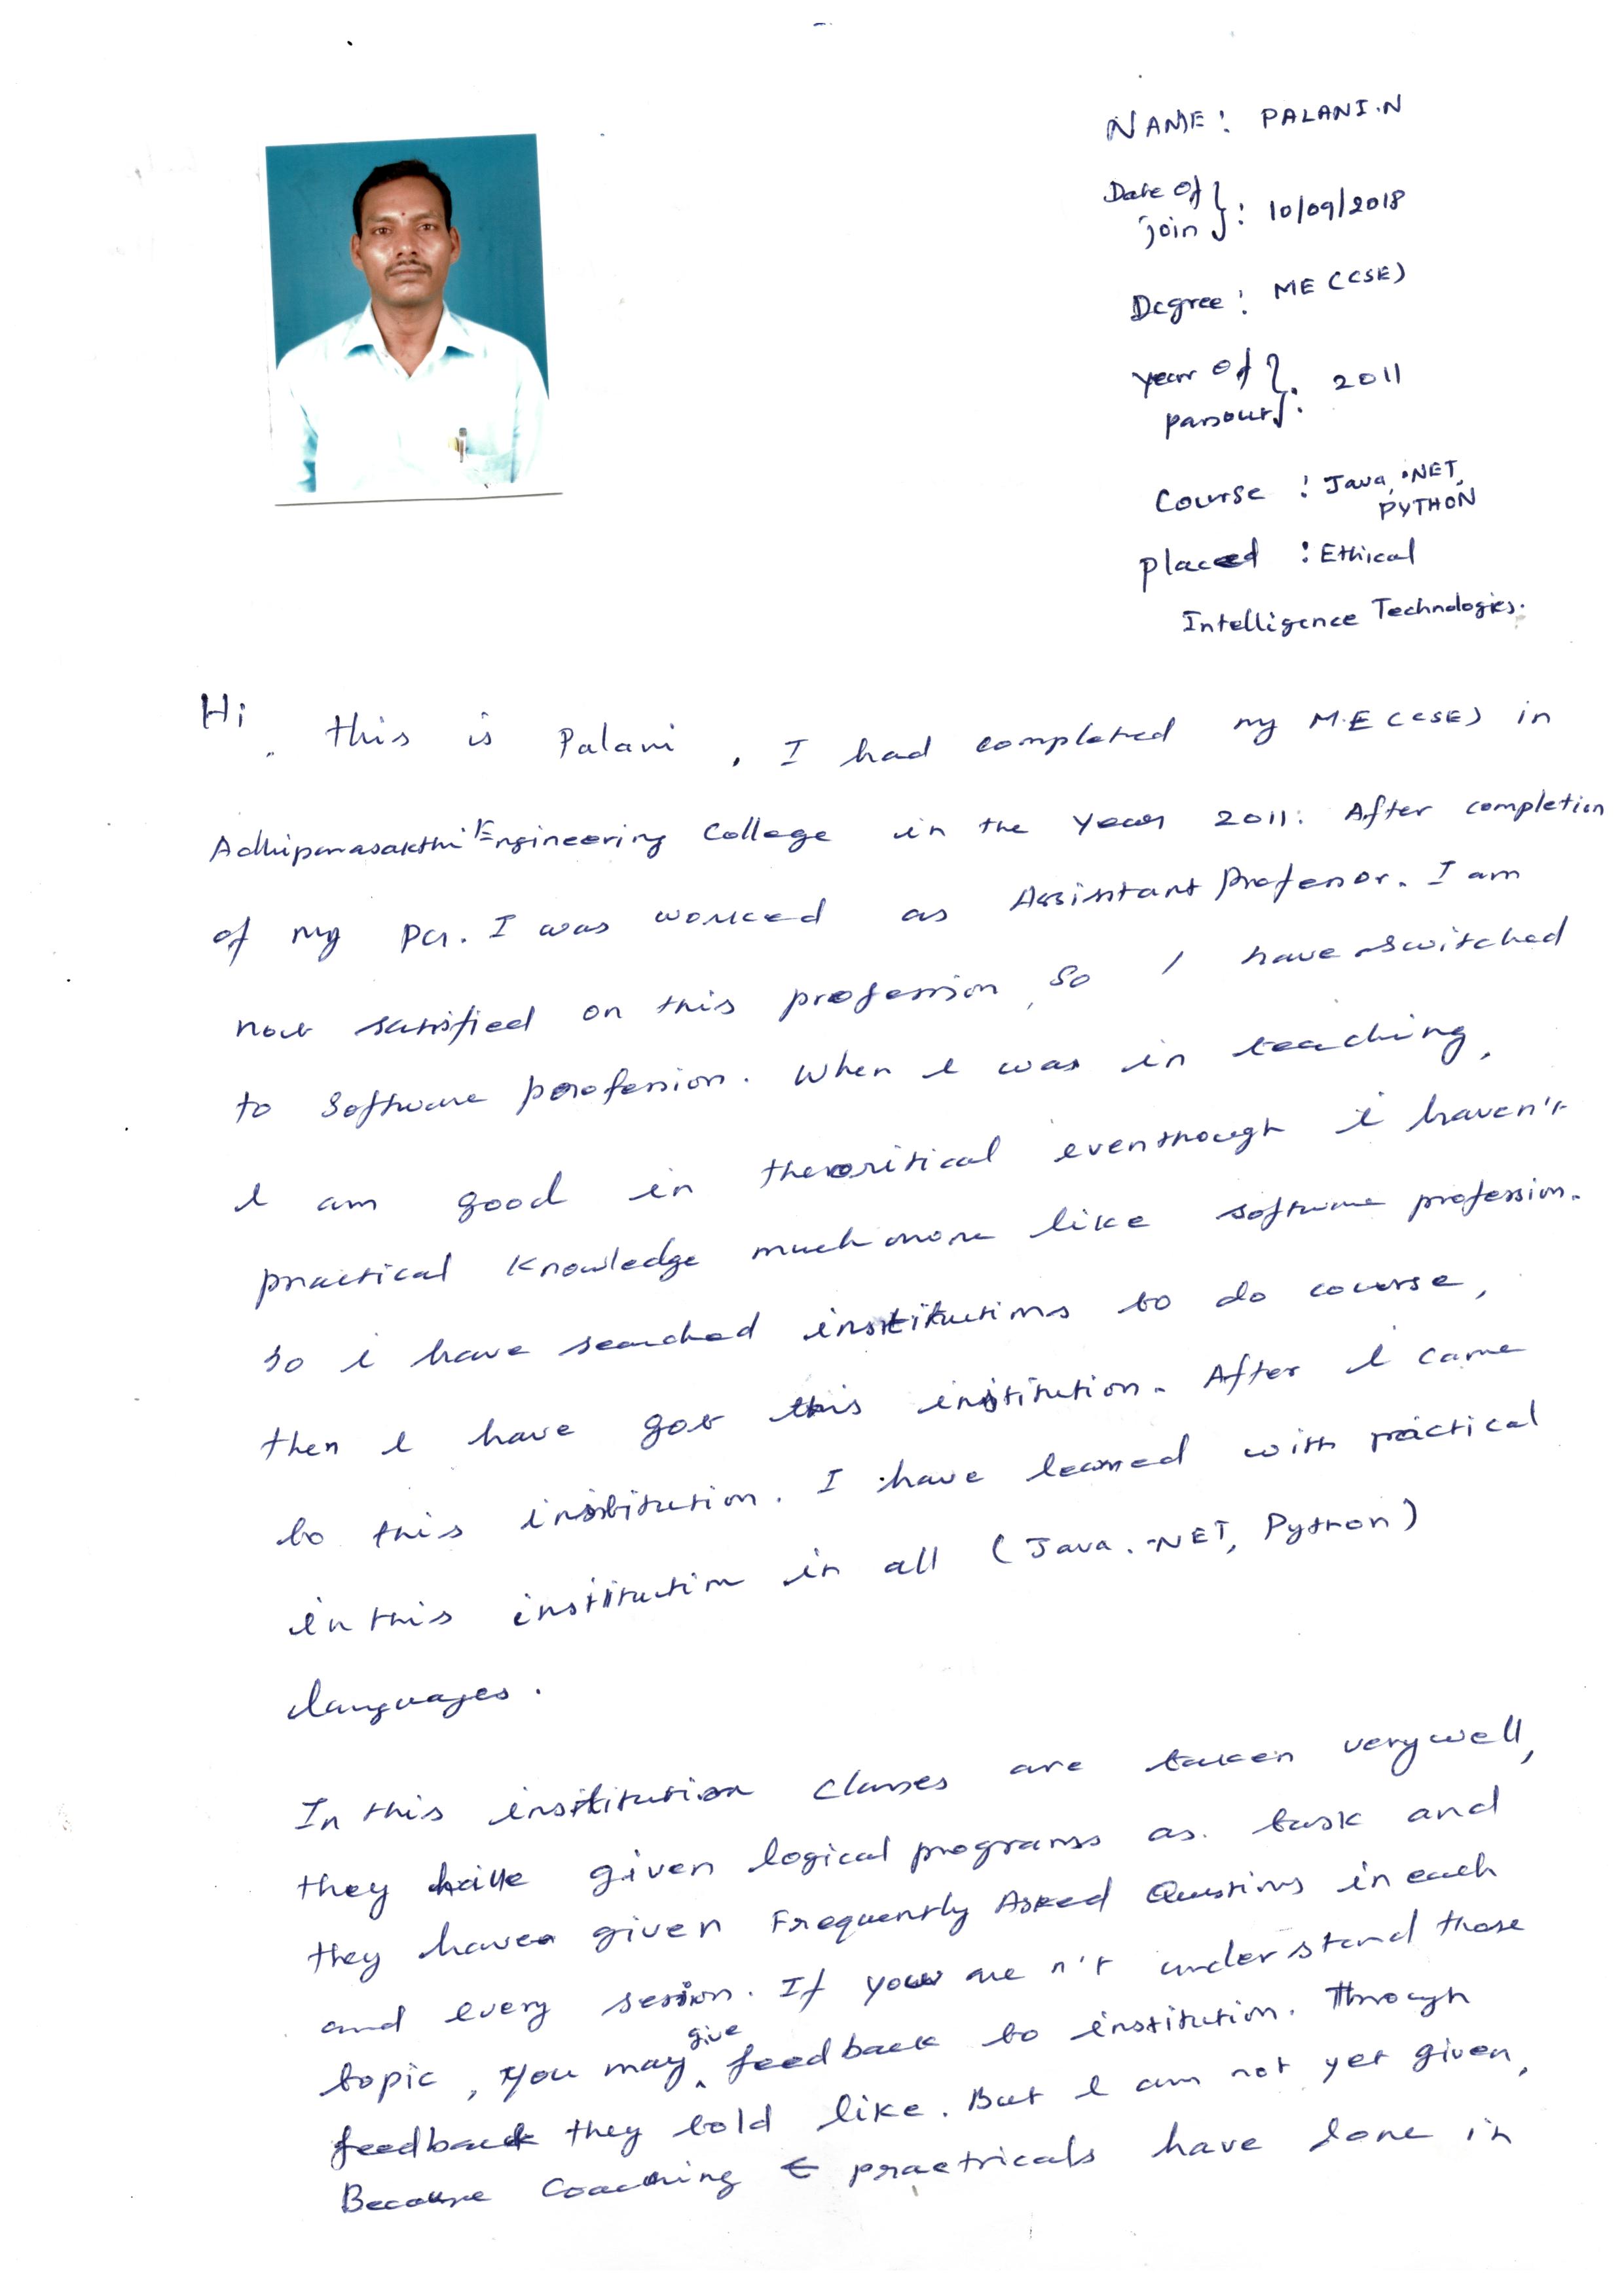 NAME : PALANI.N
Date of
join } : 10/09/2018
Degree : ME (CSE)
Year of
passout } : 2011
Course : Java, .NET,
PYTHON
Placed : Ethical
Intelligence Technologies.
Hi, this is Palani, I had completed my M.E (CSE) in
Adhiparasakthi Engineering College in the year 2011. After completion
of my PG. I was worked as Assistant Professor. I am
not satisfied on this profession, so I have switched
to Software profession. When I was in teaching,
I am good in theoritical eventhough i haven't
practical knowledge much more like software profession.
so i have searched institutions to do course,
then I have got this institution. After I came
to this institution. I have learned with practical
in this institution in all (Java, .NET, Python)
languages.
In this institution classes are taken very well,
they have given logical programs as task and
they have given Frequently Asked Questions in each
and every session. If you are n't understand those
topic, you may give feedback to institution. Through
feedback they told like. But I am not yet given,
Because Coaching & practricals have done in